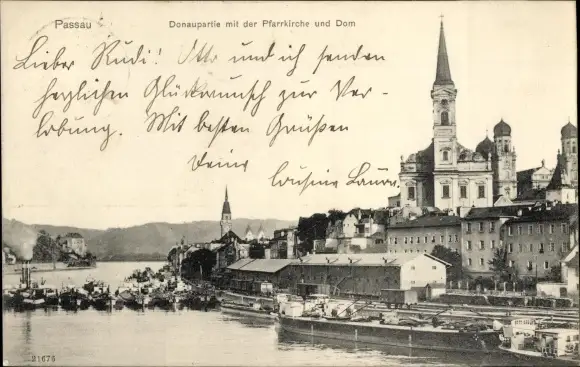 Passau Donaupartie mit der Pfarrkirche und Dom
Lieber Rudi! Otto und ich senden
herzlichen Glückwunsch zur Ver-
lobung. Mit besten Grüßen
Deine
Cousine Laura
21676